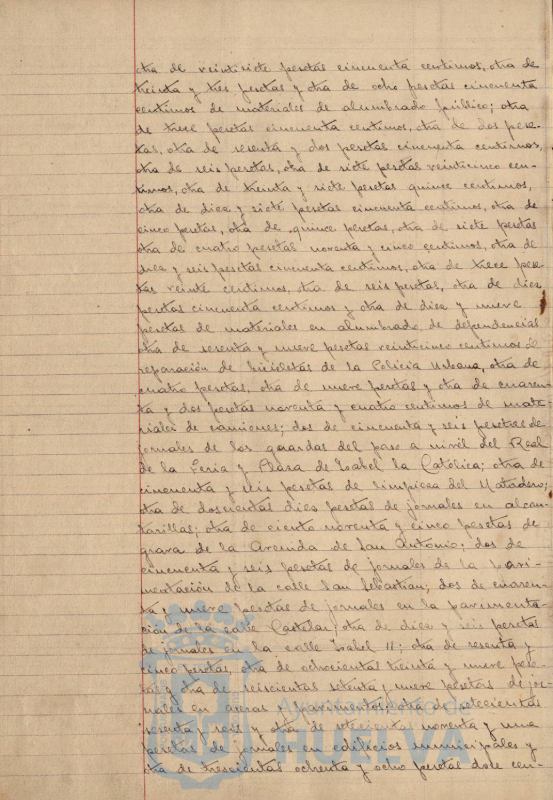 otra de veintisiete pesetas cincuenta centimos, otra de
treinta y tres pesetas y otra de ocho pesetas cincuenta
centimos de materiales de alumbrado público; otra
de trece pesetas cincuenta centimos, otra de dos pese-
tas, otra de sesenta y dos pesetas cincuenta centimos,
otra de seis pesetas, otra de siete pesetas veinticinco cen-
timos, otra de treinta y siete pesetas quince centimos,
otra de diez y siete pesetas cincuenta centimos, otra de
cinco pesetas, otra de quince pesetas, otra de siete pesetas
otra de cuatro pesetas noventa y cinco centimos, otra de
diez y seis pesetas cincuenta centimos, otra de trece pese-
tas veinte centimos, otra de seis pesetas, otra de diez
pesetas cincuenta centimos y otra de diez y nueve
pesetas de materiales en alumbrado de dependencias
otra de sesenta y nueve pesetas veinticinco centimos de
reparación de bicicletas de la Policia Urbana, otra de
cuatro pesetas, otra de nueve pesetas y otra de cuaren-
ta y dos pesetas noventa y cuatro centimos de mate-
riales de camiones; dos de cincuenta y seis pesetas de
jornales de los guardas del paso a nivel del Real
de la Feria y Plaza de Isabel la Católica; otra de
cincuenta y seis pesetas de limpieza del Matadero;
otra de doscientas diez pesetas de jornales en alcan-
tarillas; otra de ciento noventa y cinco pesetas de
grava de la Avenida de San Antonio; dos de
cincuenta y seis pesetas de jornales de la pavi-
mentación de la calle San Sebastian; dos de cuaren-
ta y nueve pesetas de jornales en la pavimenta-
ción de la calle Castelar; otra de diez y seis pesetas
de jornales en la calle Isabel II; otra de sesenta y
cinco pesetas, otra de ochocientas treinta y nueve pese-
tas y otra de seiscientas setenta y nueve pesetas de jor-
nales en aceras y pavimentos; otra de setecientas
sesenta y seis y otra de setecientas noventa y una
pesetas de jornales en edificios municipales y
otra de trescientas ochenta y ocho pesetas doce cen-
Ayuntamiento de
HUELVA